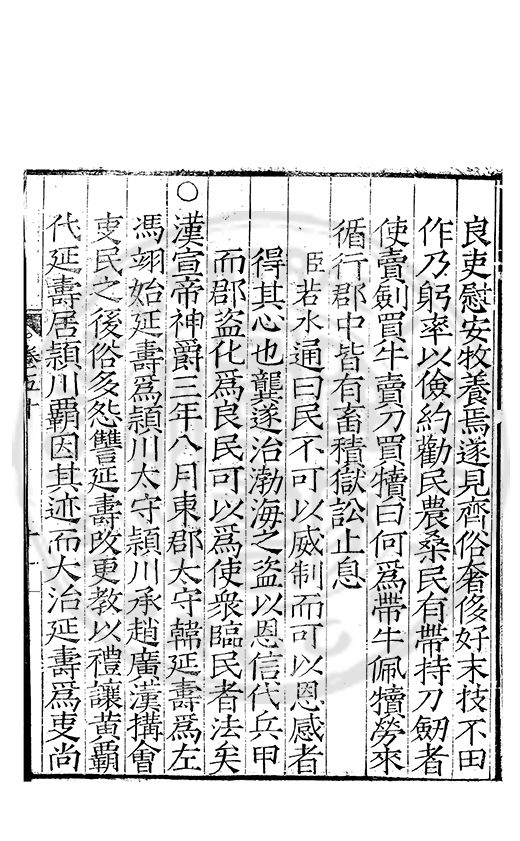 良吏慰安牧養焉遂見齊俗奢侈好末技不田
作乃躬率以儉約勸民農桑民有帶持刀劒者
使賣劍買牛賣刀買犢曰何爲帶牛佩犢勞來
循行郡中皆有畜積獄訟止息
臣若水通曰民不可以威制而可以恩感者
得其心也龔遂治渤海之盗以恩信代兵甲
而郡盗化爲良民可以爲使衆臨民者法矣
○
漢宣帝神爵三年八月東郡太守韓延壽爲左
馮翊始延壽爲頴川太守頴川承趙廣漢搆會
吏民之後俗多怨讐延壽改更教以禮讓黃覇
代延壽居頴川覇因其迹而大治延壽爲吏尚
卷五十